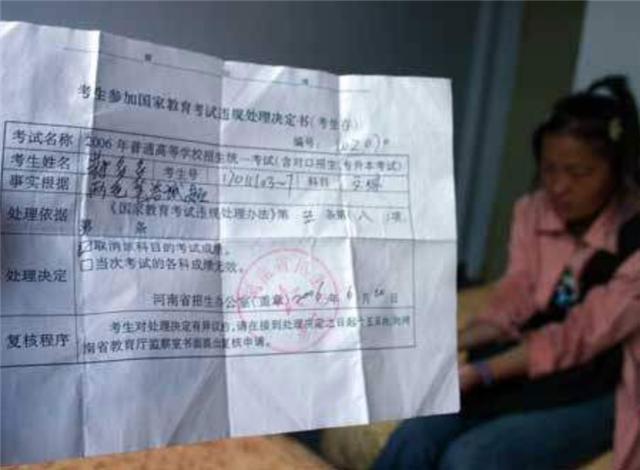 考生参加国家教育考试违规处理决定书(考生存)
编号:
考试名称 2006年普通高等学校招生统一考试(含对口招生、专升本考试)
考生姓名 考生号 科目
事实根据
处理依据 《国家教育考试违规处理办法》第 条第(八)项
第 条
处理决定 ☑取消该科目的考试成绩。
□当次考试的各科成绩无效。
河南省招生办公室(盖章)2006年6月20日
复核程序 考生对处理决定有异议的,请在接到处理决定之日起十五日内,向河
南省教育厅监察室书面提出复核申请。